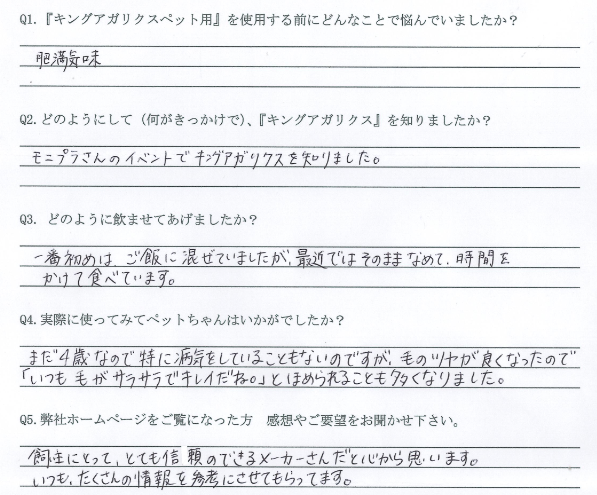 Q1.『キングアガリクスペット用』を使用する前にどんなことで悩んでいましたか？
肥満気味
Q2.どのようにして（何がきっかけで）、『キングアガリクス』を知りましたか？
モニプラさんのイベントでキングアガリクスを知りました。
Q3. どのように飲ませてあげましたか？
一番初めは、ご飯に混ぜていましたが、最近ではそのままなめて、時間を
かけて食べています。
Q4.実際に使ってみてペットちゃんはいかがでしたか？
まだ4歳なので特に病気をしていることもないのですが、毛のツヤが良くなったので
「いつも毛がサラサラでキレイだね。」とほめられることも多くなりました。
Q5.弊社ホームページをご覧になった方　感想やご要望をお聞かせ下さい。
飼主にとって、とても信頼のできるメーカーさんだと心から思います。
いつも、たくさんの情報を参考にさせてもらってます。